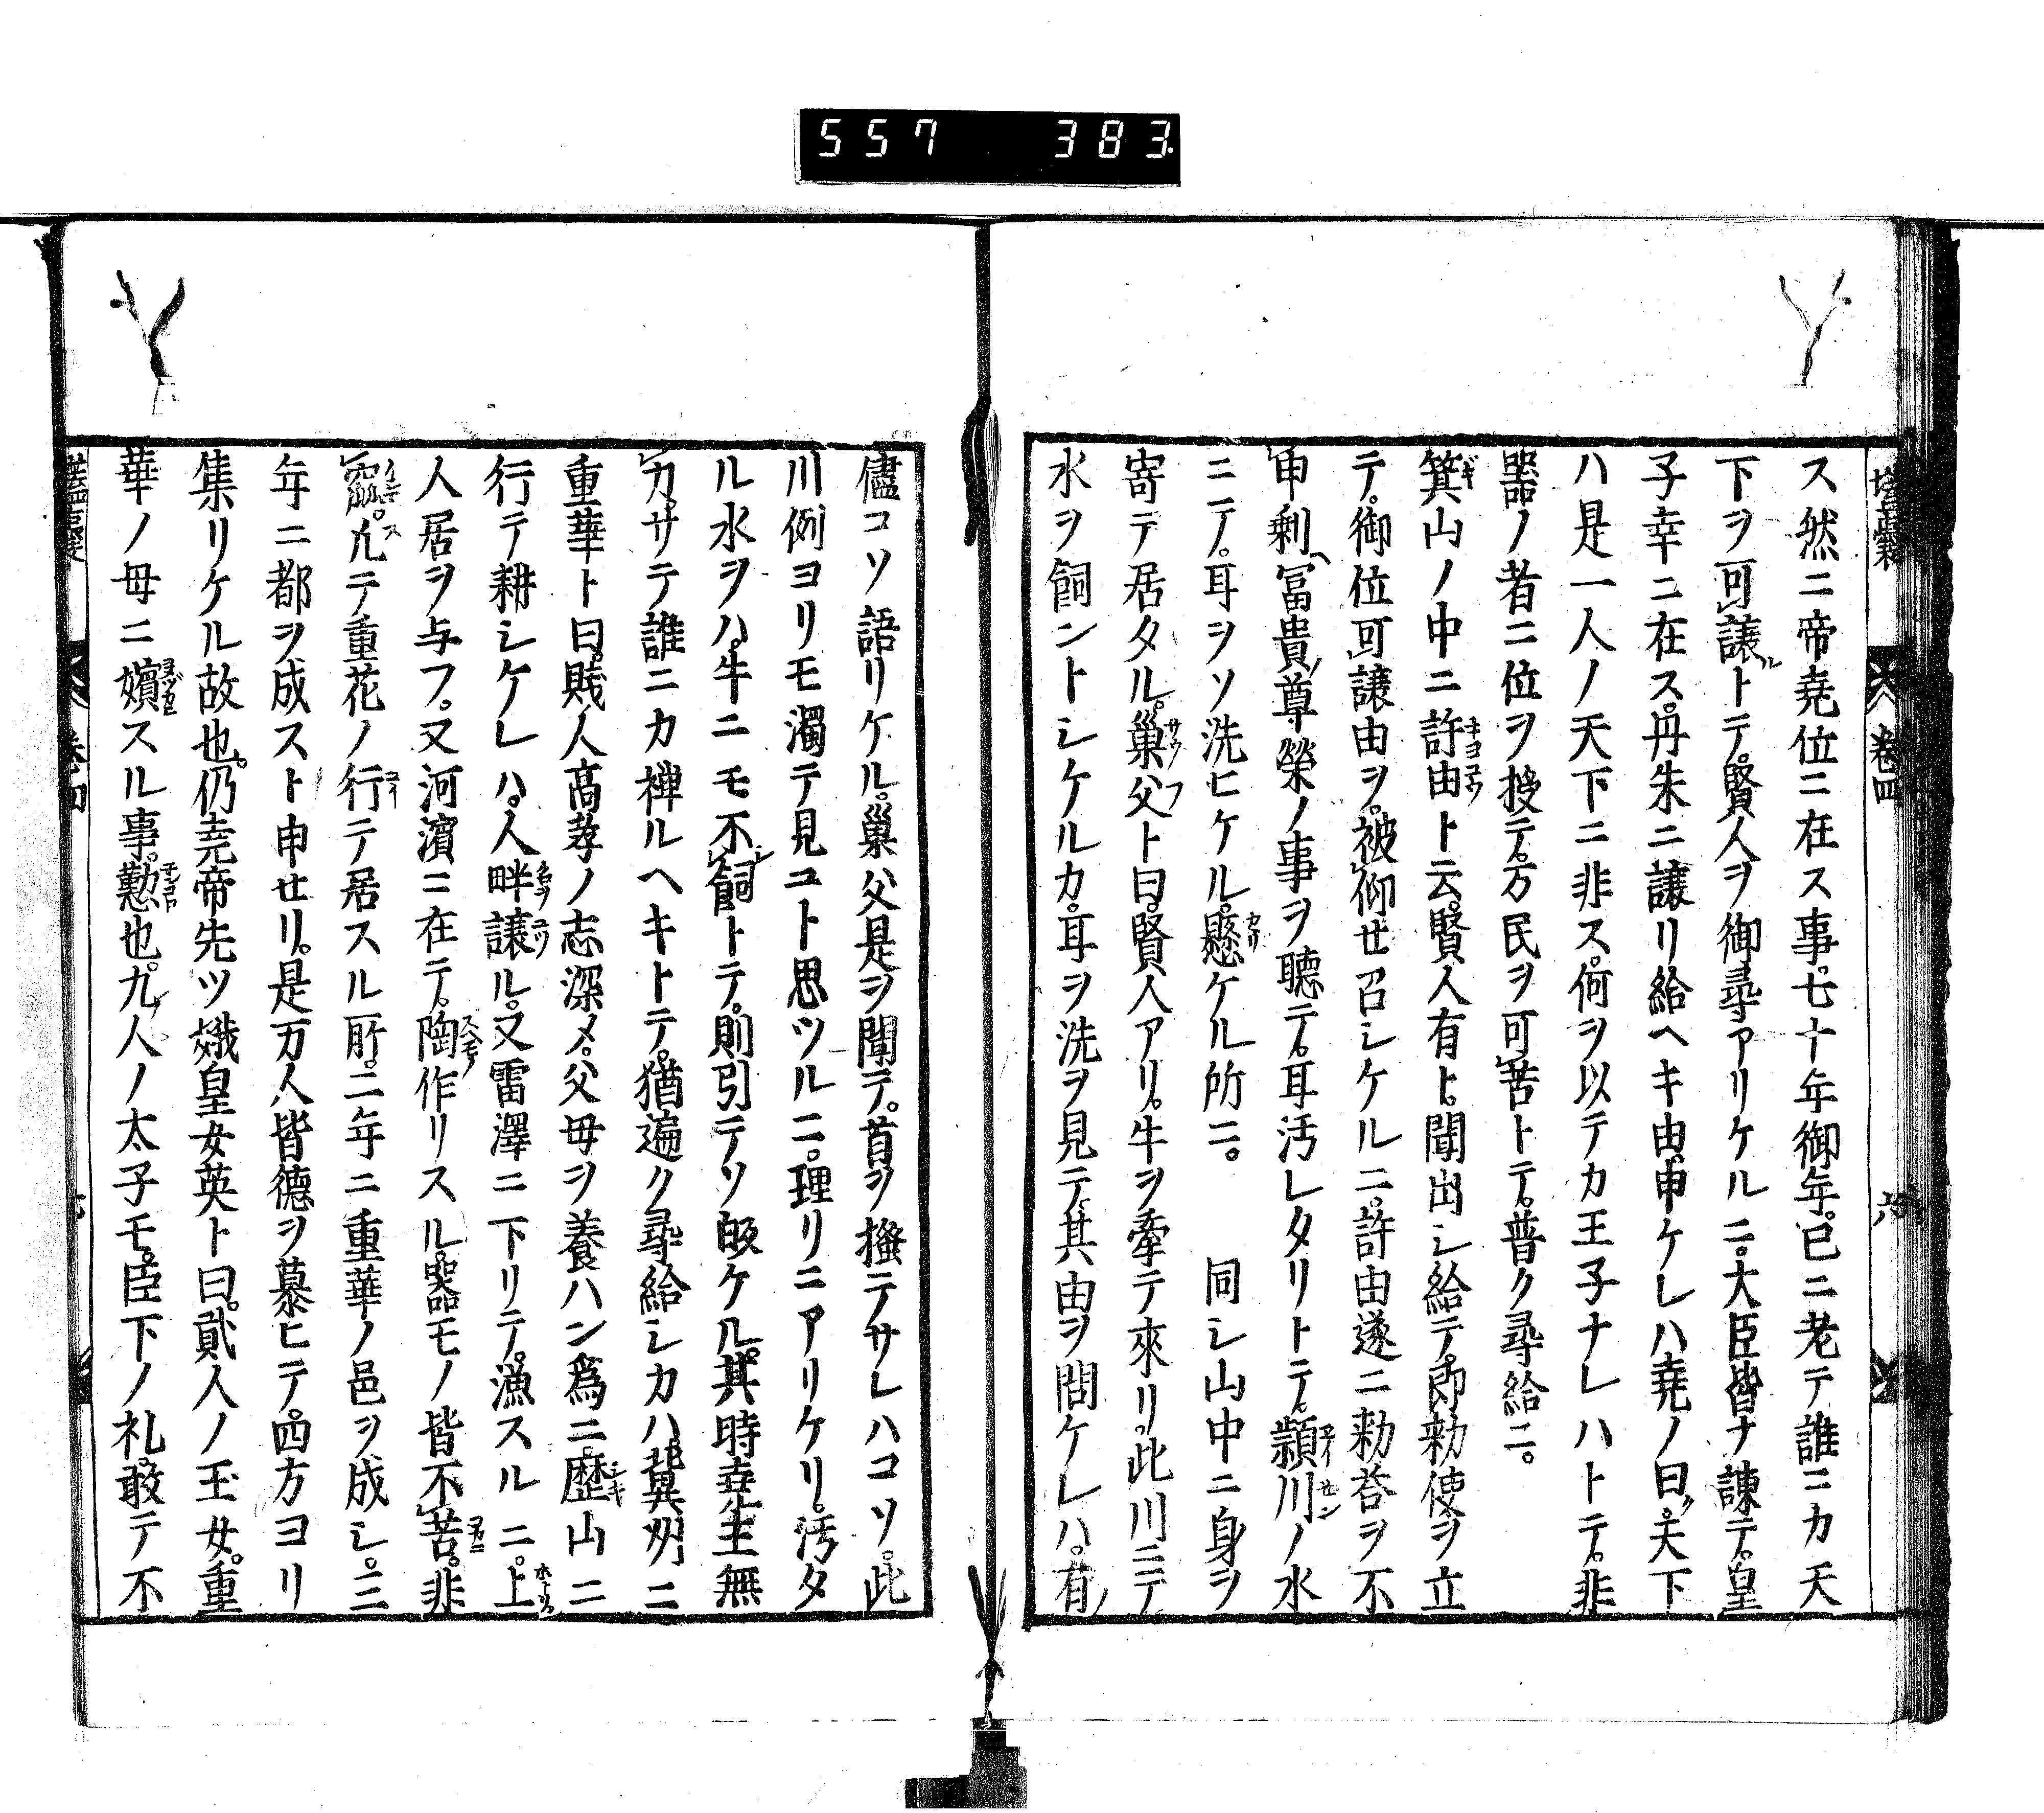 557 383
卷四
ス然ニ帝堯位ニ在ス事。七十年御年。已ニ老テ誰ニカ天
下ヲ可譲トテ。賢人ヲ御尋アリケルニ。大臣皆ナ諫テ。皇
子幸ニ在ス。丹朱ニ譲リ給ヘキ由申ケレハ堯ノ曰。天下
ハ是一人ノ天下ニ非ス。何ヲ以テカ王子ナレハトテ。非
器ノ者ニ位ヲ授テ。万民ヲ可苦トテ。普ク尋給ニ。
箕山ノ中ニ許由ト云。賢人有ト。聞出シ給テ即勅使ヲ立
テ。御位可譲由ヲ。被仰せ召シケルニ。許由遂ニ勅答ヲ不
申剰冨貴尊榮ノ事ヲ聴テ。耳汚レタリトテ。頴川ノ水
ニテ。耳ヲソ洗ヒケル。懸ケル所ニ。同シ山中ニ身ヲ
寄テ居タル。巣父ト曰。賢人アリ。牛ヲ牽テ來リ。此川ニテ
水ヲ飼ントシケルカ。耳ヲ洗ヲ見テ。其由ヲ問ケレハ。有
儘コソ語リケル。巣父是ヲ聞テ。首ヲ掻テサレハコソ。此
川例ヨリモ濁テ見ユト思ツルニ。理リニアリケリ。汚タ
ル水ヲハ。牛ニモ不飼トテ。則引テソ皈ケル。其時堯主無
力。サテ誰ニカ禅ルヘキトテ。猶遍ク尋給シカハ。冀州ニ
重華ト曰。賎人髙孝ノ志深メ。父母ヲ養ハン為ニ歴山ニ
行テ耕シケレハ。人畔譲ル。又雷澤ニ下リテ。漁スルニ。上
人居ヲ与フ。又河濱ニ在テ。陶作リスル。器モノ皆不苦。非
窳。凡テ重花ノ行テ居スル所。二年ニ重華ノ邑ヲ成シ。三
年ニ都ヲ成スト申せリ。是万人皆德ヲ慕ヒテ。四方ヨリ
集リケル故也。仍堯帝先ツ娥皇女英ト曰。貳人ノ王女。重
華ノ母ニ嬪スル事。懃也。九人ノ太子モ。臣下ノ礼。敢テ不